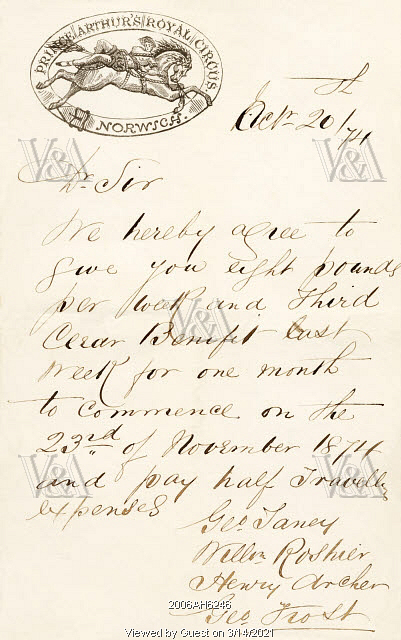 PRINCE ARTHUR'S ROYAL CIRCUS.
NORWICH.
Octr 20th/74
Dr Sir
We hereby agree to
give you eight pounds
per week and third
Cear Benifit last
week for one month
to commence on the
23rd of November 1874
and pay half Travelling
expenses
Geo Taney
Willm Roshier
Henry Archer
Geo Frost
V&A
V&A
V&A
V&A
V&A
2006AH6246
Viewed by Guest on 3/14/2021